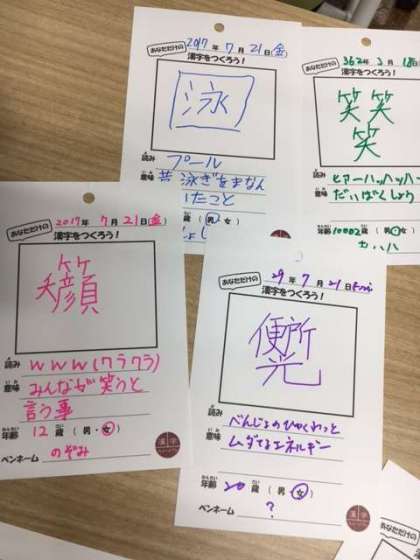 2017年 7月 21日(金)
あなただけの
漢字をつくろう!
泳
読み プール
意味
362年 3月
あなただけの
漢字をつくろう!
笑笑
笑
読み ヒアーハッハッハー
意味 だいばくしょう
年齢 10002歳 (男・女)
2017年 7月 21日(金)
あなただけの
漢字をつくろう!
笑顔
読み www(ワラワラ)
意味 みんなが笑うと
言う事
年齢 12歳 (男・女)
ペンネーム のぞみ
漢字
29年 7月 21日
あなただけの
漢字をつくろう!
便所
光
読み
意味 べんじょの
ムダなエネルギー
年齢 20歳 (男・女)
ペンネーム ?
漢字
あなただけの